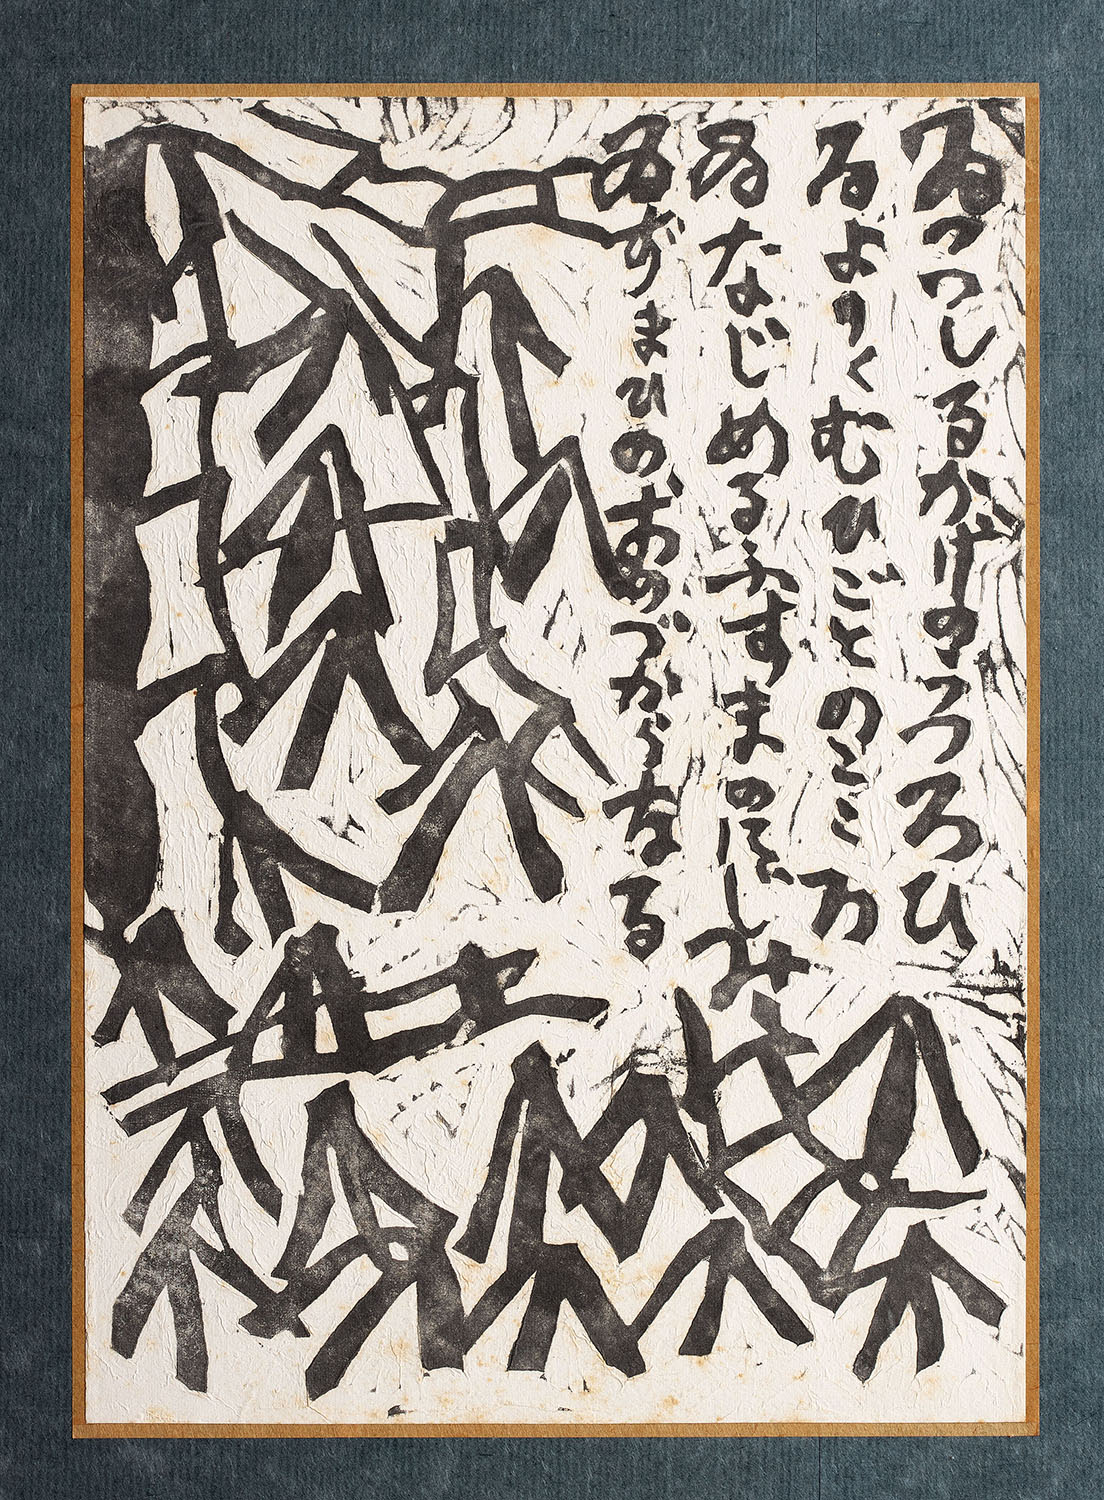 ゐつつしるかげのうつろひ
ゐよりくむひごとの
ゐなじめるふすまの
ゐずまひのおのづからなる